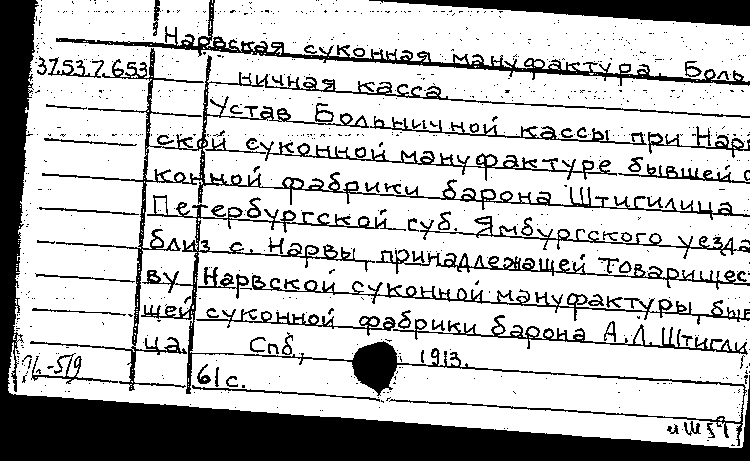 Нарвская суконная мануфактура. Боль
37.53.7.653
ничная касса
Устав Больничной кассы при Нарв
ской суконной мануфактуре бывшей с
конной фабрики барона Штигилица
Петербургской губ. Ямбургского уезда
близ с. Нарвы, принадлежащей Товарищес
ву Нарвской суконной мануфактуры, быв
щей суконной фабрики барона А.Л. Штигли
ца. Спб., 1913.
61 с.